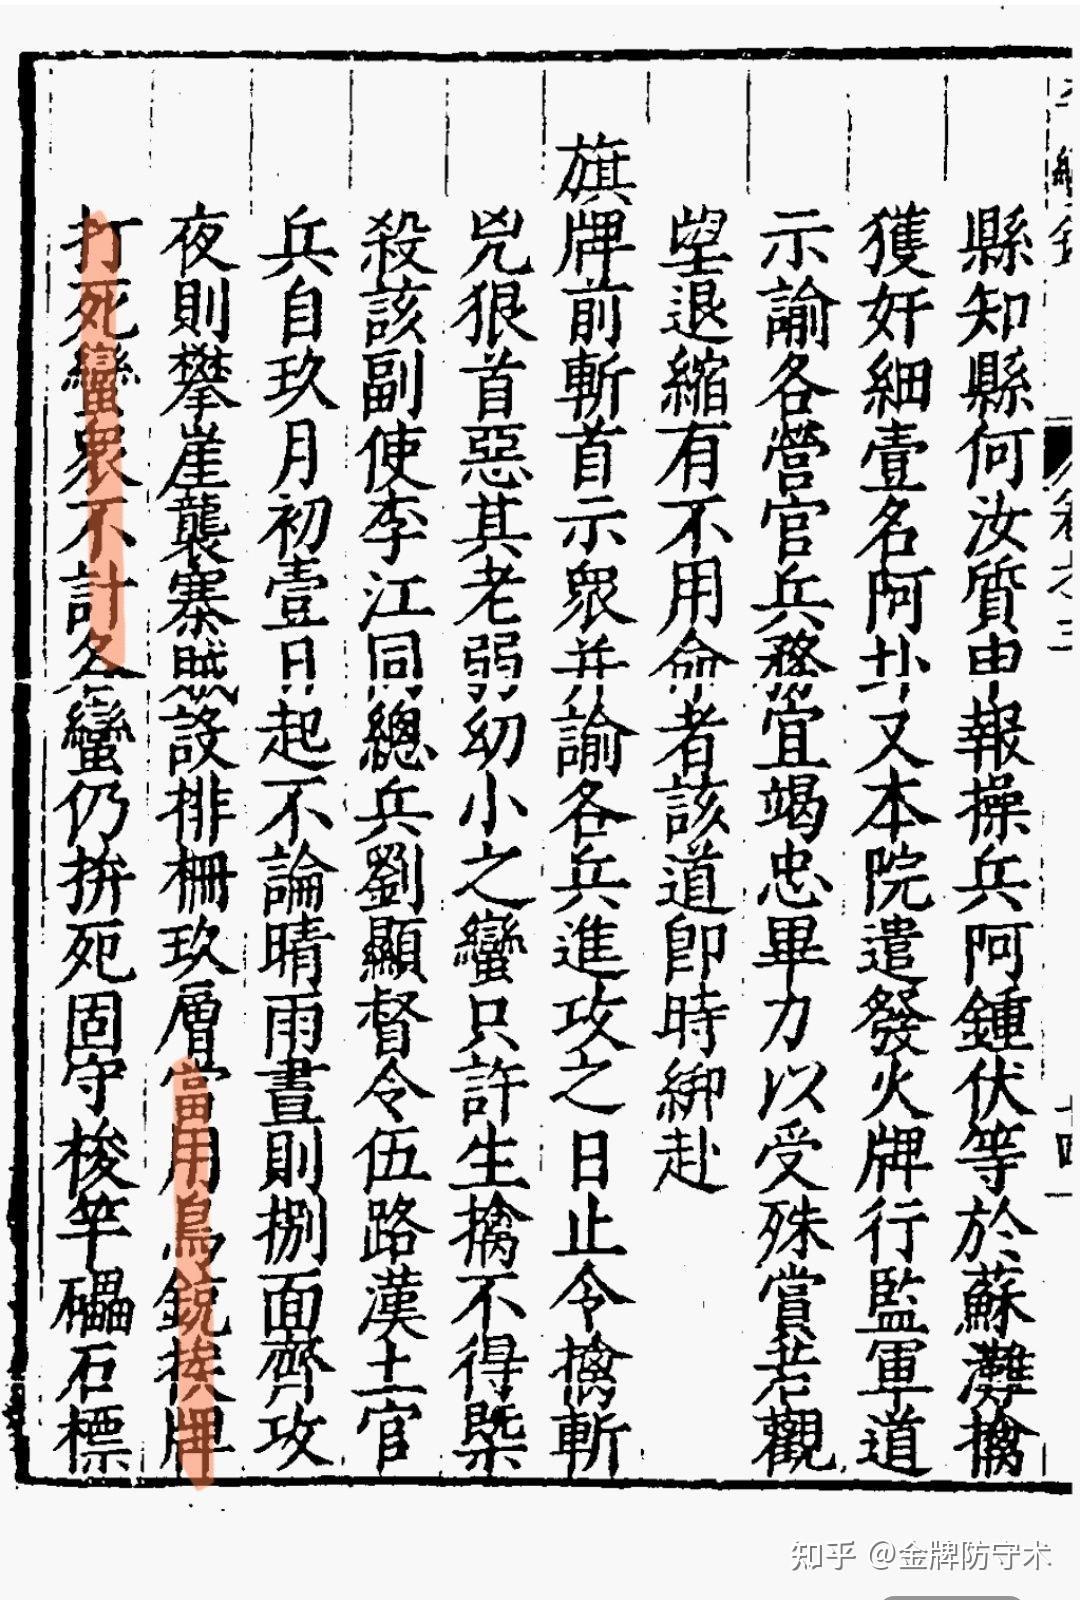 縣知縣何汝質申報操兵阿鍾伏等於蘇灘擒
獲奸細壹名阿卦又本院遣發火牌行監軍道
示諭各營官兵務宜竭忠畢力以受殊賞若觀
望退縮有不用命者該道卽時綁赴
旗牌前斬首示眾并諭各兵進攻之日止令擒斬
兇狠首惡其老弱幼小之蠻只許生擒不得槩
殺該副使李江同總兵劉顯督令伍路漢土官
兵自玖月初壹日起不論晴雨晝則捌面齊攻
夜則攀崖襲寨賊設排柵玖層當用鳥銃挨牌
打死蠻眾不計各蠻仍拚死固守梭竿礧石標
知乎 @金牌防守术